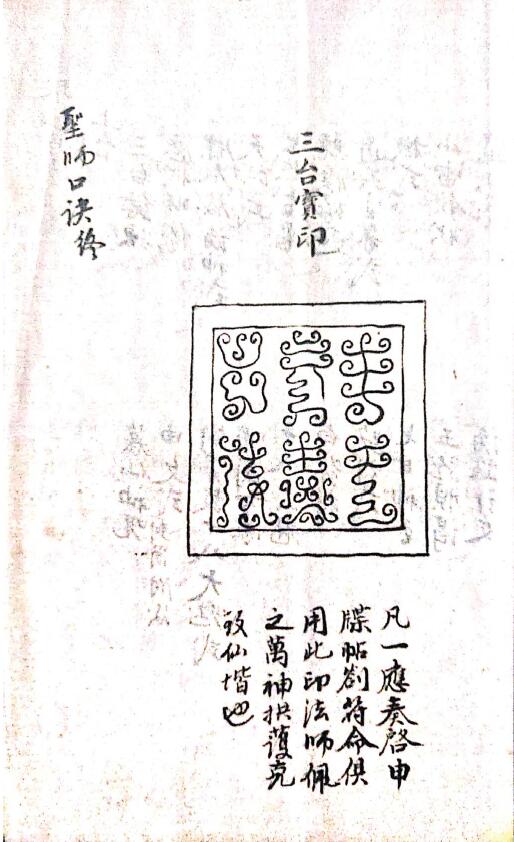 三台寳印
凡一應奏啓申
牒帖劄符命俱
用此印法師佩
之萬神拱護克
致仙堦也
聖师口诀终